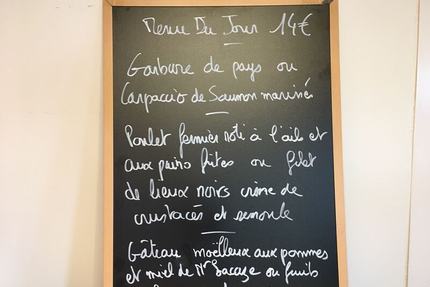 Menu Du Jour 14€
Garbure de pays ou
Carpaccio de Saumon marinés
Poulet fermier roti à l'ails et
aux pains frites ou filet
de lieux noirs crème de
crustacés et semoule
Gâteau moëlleux aux pommes
et miel de Mr Lacaze ou fruits